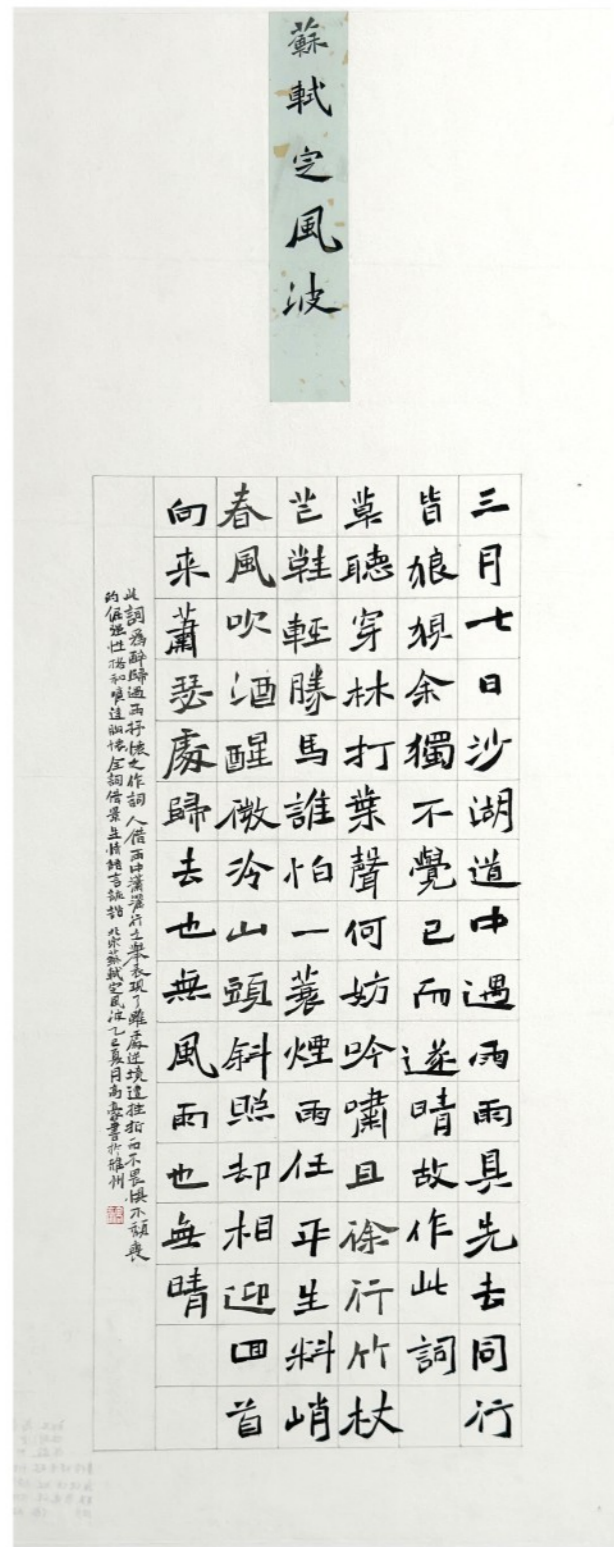 蘇軾定風波
三月七日沙湖道中遇雨雨具先去同行
皆狼狽余獨不覺已而遂晴故作此詞
莫聽穿林打葉聲何妨吟嘯且徐行竹杖
芒鞋輕勝馬誰怕一蓑煙雨任平生料峭
春風吹酒醒微冷山頭斜照却相迎回首
向来蕭瑟處歸去也無風雨也無晴
此詞爲醉歸遇雨抒懷之作詞人借雨中瀟灑行之舉表現了雖處逆境遭挫折而不畏惧不頹喪
的倔强性格和曠達胸懷全詞借景生情語言詼諧 北宋蘇軾定風波乙巳夏月高豪書於雅州